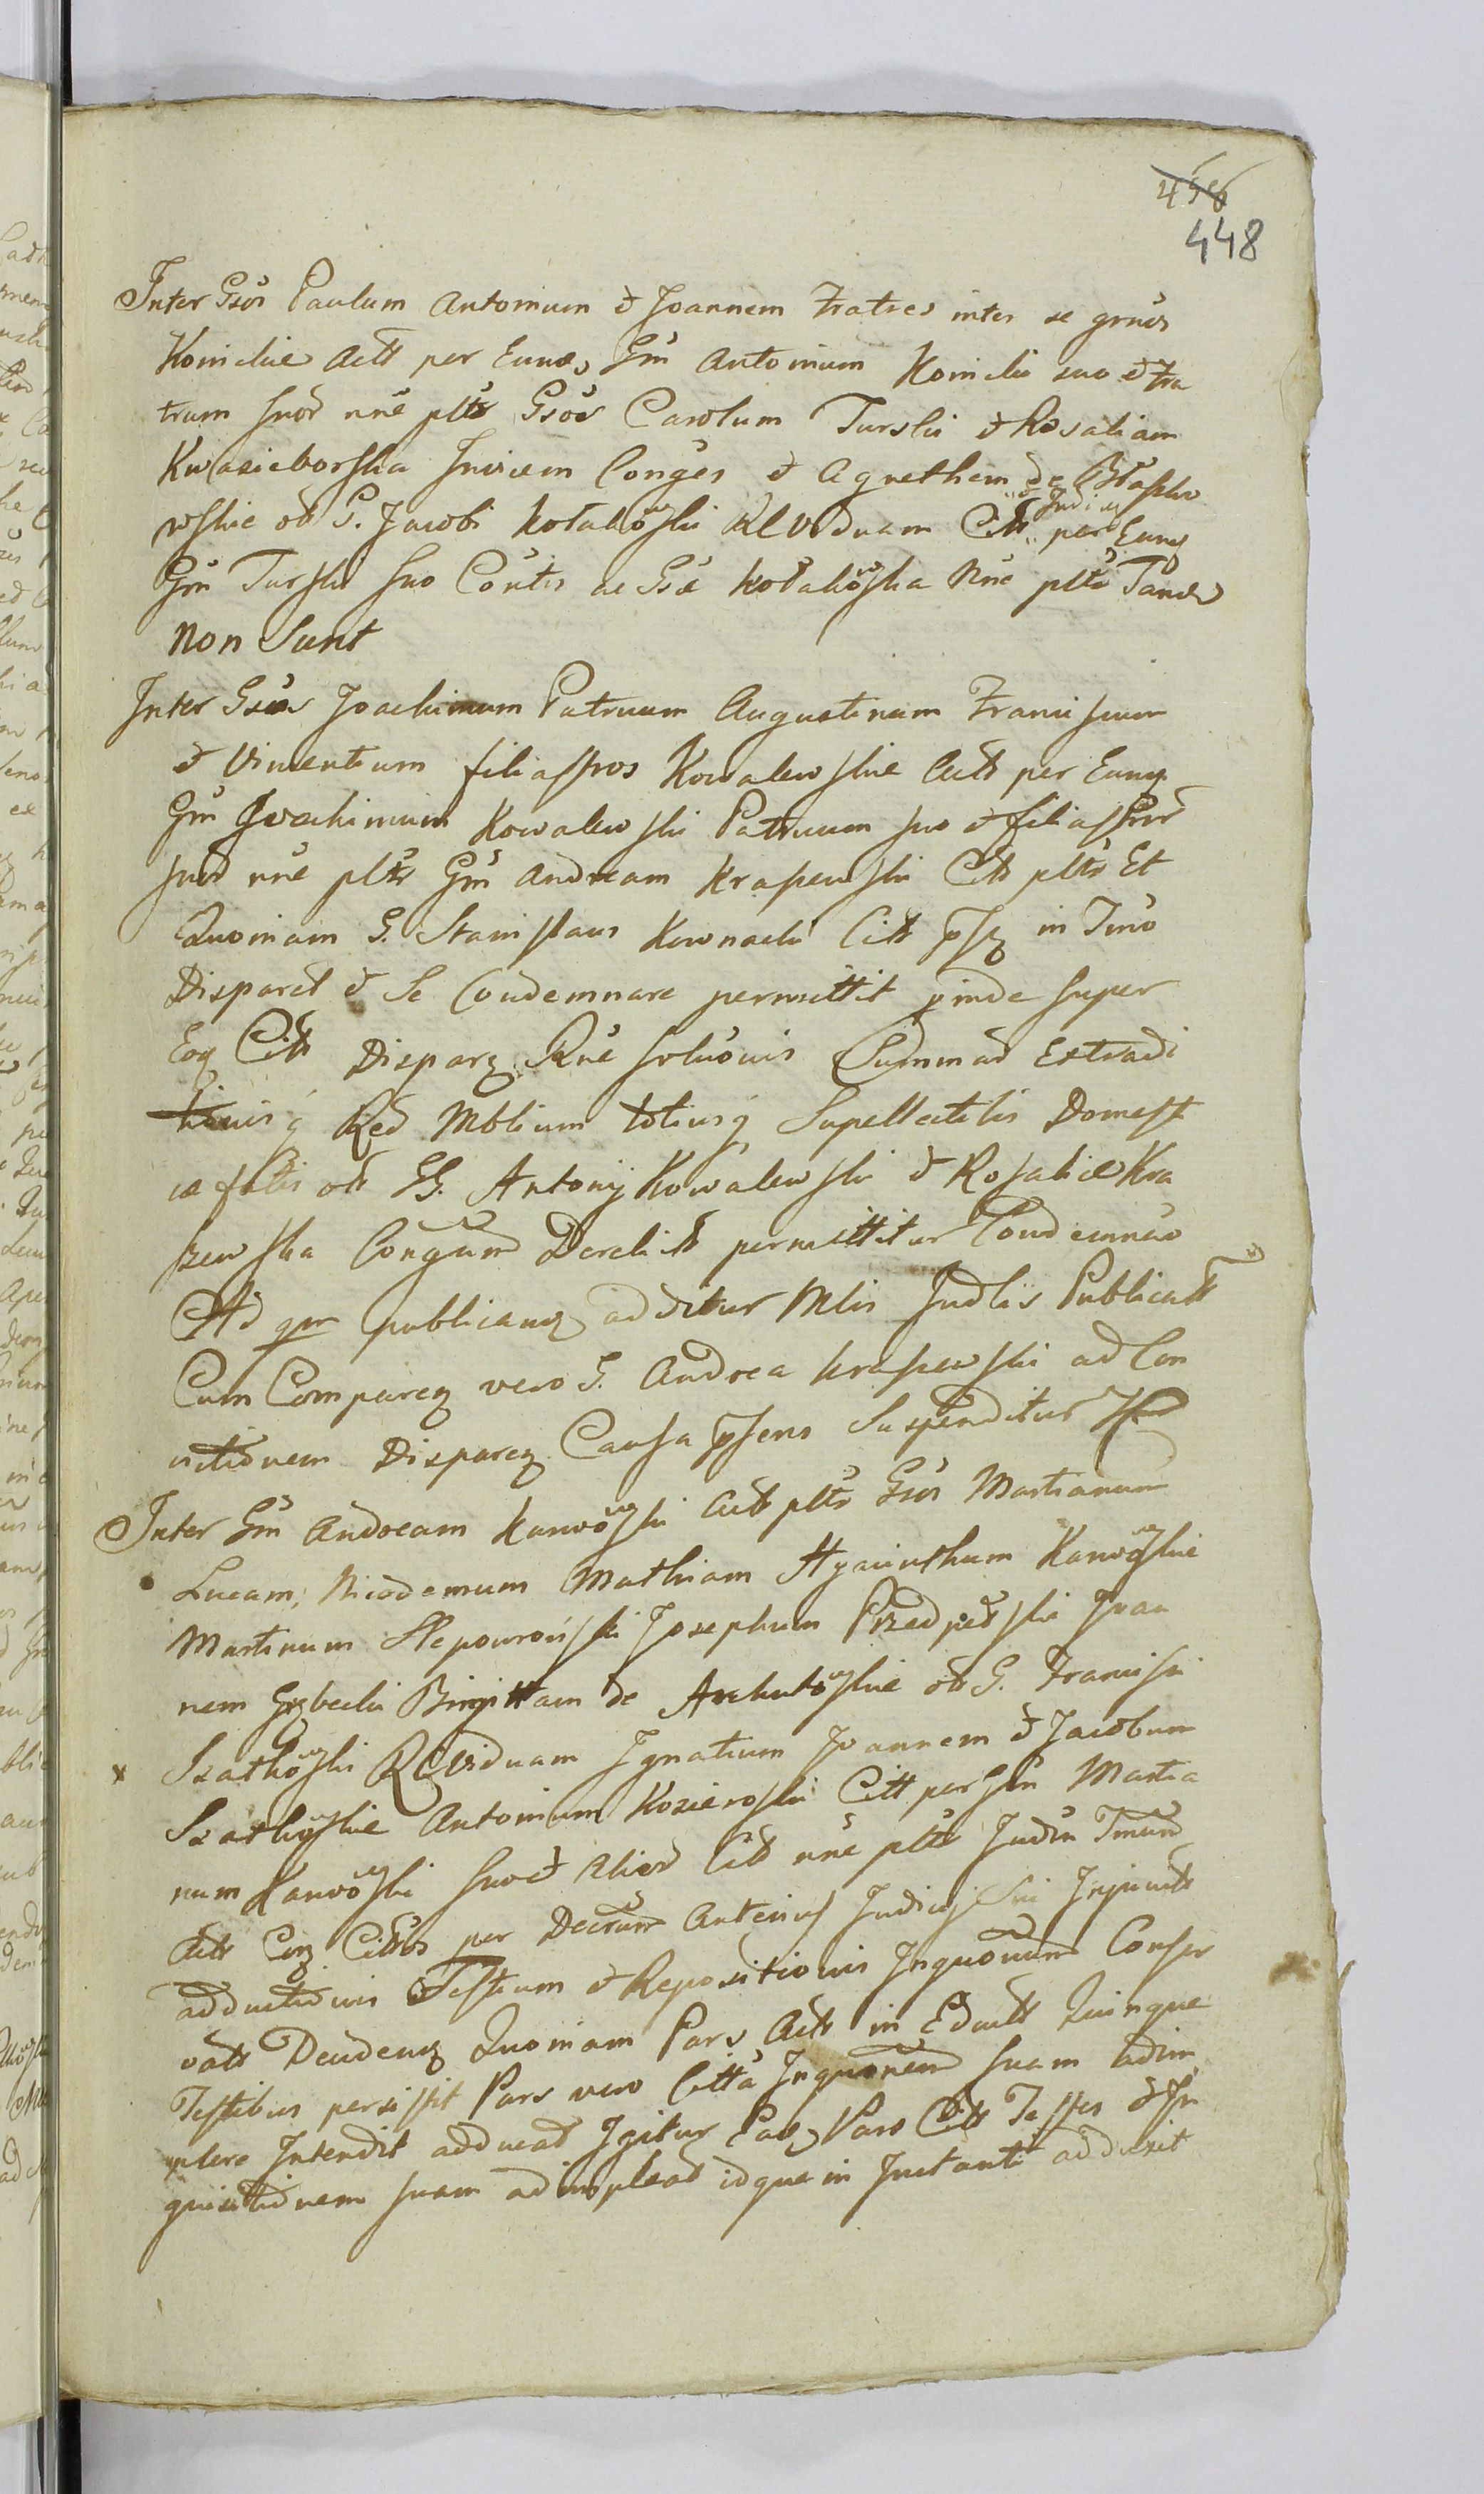 458
448
Inter Gsos Paulum Antonium et Joannem Fratres inter se grnos
Konickie Actt per Eund Gm Antonium Konicki suo et Fra
trum suor nne pltr Gsos Carolum Turski et Rosaliam
Kwasieborska Invicem Conges et Agnethem de Błaszko
wskie ob G. Jacobi Kołakowski Rl Viduam Citt Judicij per Eund
Gm Turski suo Contis ac Gse Kołakowska Nne pltr Pars
non Sunt
Inter Gsos Joachimum Patruum Augustinum Franciscum
et Vincentium filiastros Kowalewskie Actt per Eund
Gm Joachimum Kowalewski Patruum suo et filiastror
suor nne pltr Gm Andream Kraszewski Citt pltr Et
Quoniam G. Stanislaus Kownacki Citt in Tmo
Disparet et Se Condemnare permittit proinde super
Eoq Citt Disparen Rne solutionis Summar Extradi
q Red Mblium totiusq Supellectilis Domest
ca ob GG. Antonij Kowalewski et Rosaliae Kra
szewska Congum Derelictt permittitur Condemnao
Ad qm publicang additur Mlis Judlis Publicatt
Cum Comparen vero G. Andrea Kraszewski ad Con
victionem Disparen Causa psens Suspenditur
Inter Gm Andream Karwowski Actt pltr Gsos Martianum
Lucam, Nicodemum Mathiam Hyacinthum Karwowskie
Martinum Slepowroński Josephum Przedpełski Joan
nem Grzbecki Brigittam de Archutowskie ob G. Francisci
x Szatkowski Rl Viduam Ignatium Joannem et Jacobum
Szatkowskie Antonium Kozierowski Citt per Gm Martia
num Karwowski suo et Alior Citt nne pltr Judm Tmum
Actt Cum Cittis per Decrum Anterius Judicij Sui Injunctt
adductionis Testium et Repositionis Inquonum Conser
vatt Dendens Quoniam Pars Actt in Eductt Quinque
Testibus persistit Pars vero Citta Inquonem suam adim
plere Intendit adducat Igitur Ead Pars Citt Testes et In
quisitionem suam adimpleat idque in Instanti adduxit